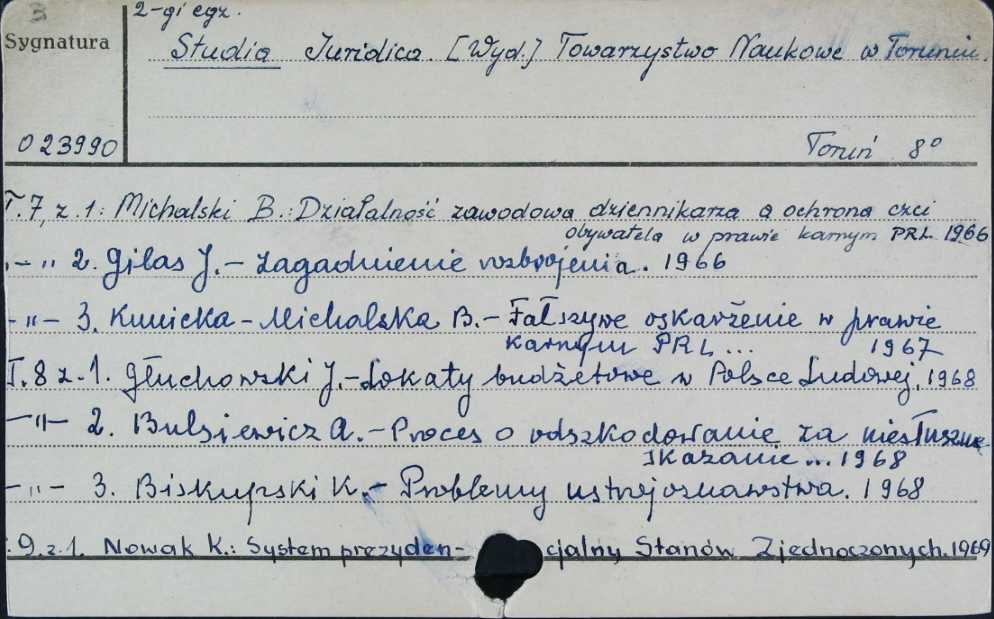 3
2-gi egz.
Sygnatura
Studia Juridica. [Wyd.] Towarzystwo Naukowe w Toruniu.
023990
Toruń 8°
T.7, z.1: Michalski B.: Działalność zawodowa dziennikarza a ochrona czci
obywatela w prawie karnym PRL. 1966
-"- 2. Gilas J. - Zagadnienie rozbrojenia. 1966
-"- 3. Kunicka-Michalska B. - Fałszywe oskarżenie w prawie
karnym PRL... 1967
T.8 z.1. Głuchowski J. - Lokaty budżetowe w Polsce Ludowej. 1968
-"- 2. Bulsiewicz A. - Proces o odszkodowanie za niesłuszne
skazanie... 1968
-"- 3. Biskupski K. - Problemy ustrojoznawstwa. 1968
: 9. z.1. Nowak K.: System prezyden-cjalny Stanów Zjednoczonych. 1969